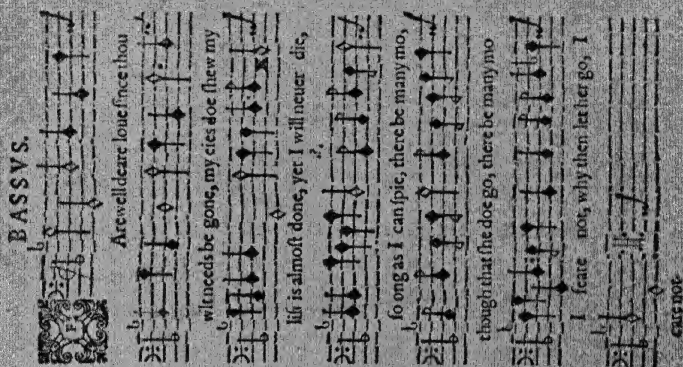 BASSVS.
F
Arewell deare loue since thou
wilt needs be gone, my eies doe shew my
life is almost done, yet I will neuer die,
so long as I can spie, there be many mo,
though that she doe go, there be many mo
I feare not, why then let her go, I
care not